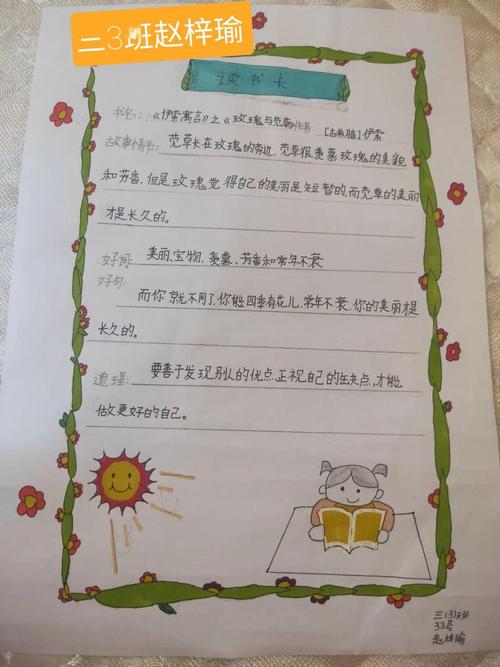 二3班赵梓瑜
读书卡
书名:《伊索寓言》之《玫瑰与苋草》作者 [古希腊]伊索
故事情节: 苋草长在玫瑰的旁边,苋草很羡慕玫瑰的美貌
和芳香,但是玫瑰觉得自己的美丽是短暂的,而苋草的美丽
才是长久的。
好词: 美丽、宝物、羡慕、芳香和常年不衰
好句:
而你就不同了,你能四季有花儿,常年不衰,你的美丽才是
长久的。
道理: 要善于发现别人的优点,正视自己的缺点,才能
做更好的自己。
三(3)班
赵梓瑜